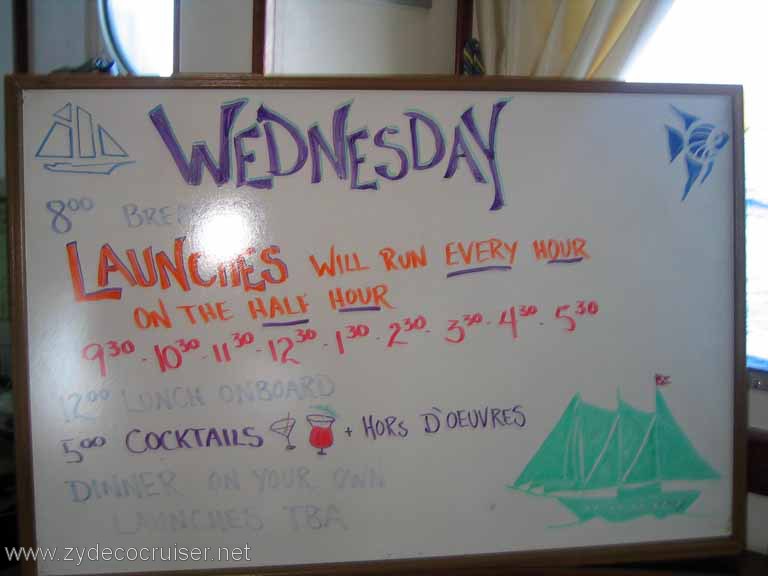 WEDNESDAY
8⁰⁰
LAUNCHES WILL RUN EVERY HOUR
ON THE HALF HOUR
9³⁰ - 10³⁰ - 11³⁰ - 12³⁰ - 1³⁰ - 2³⁰ - 3³⁰ - 4³⁰ - 5³⁰
12⁰⁰ LUNCH ONBOARD
5⁰⁰ COCKTAILS + HORS D'OEUVRES
DINNER ON YOUR OWN
LAUNCHES TBA
www.zydecocruiser.net